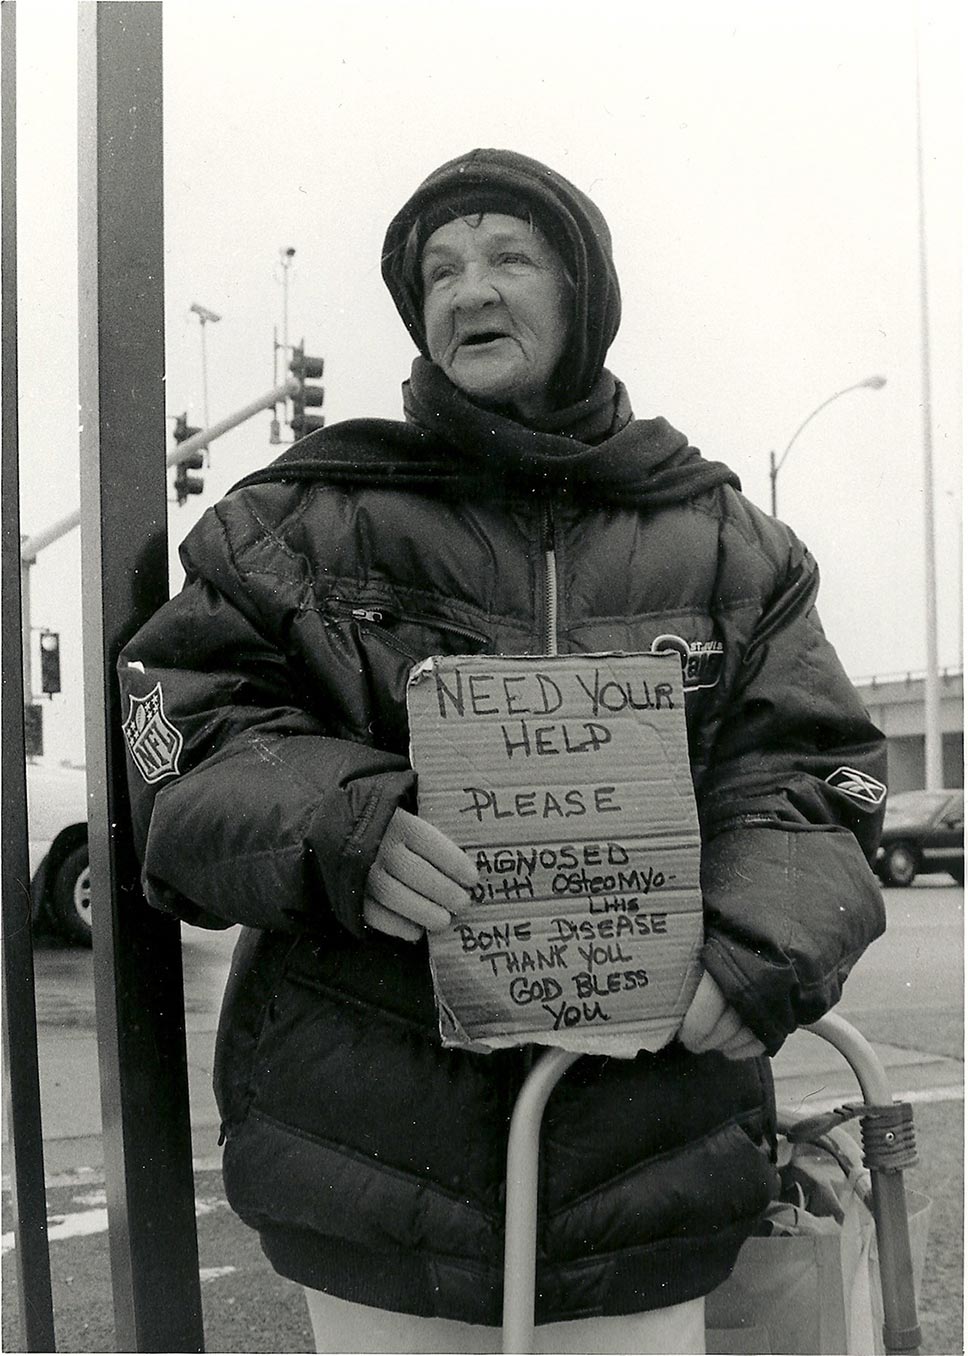 NEED YOUR
HELP
PLEASE
AGNOSED
with OsteoMyo-
Litis
BONE DISEASE
THANK YOU
GOD BLESS
YOU
NFL
ST. LOUIS